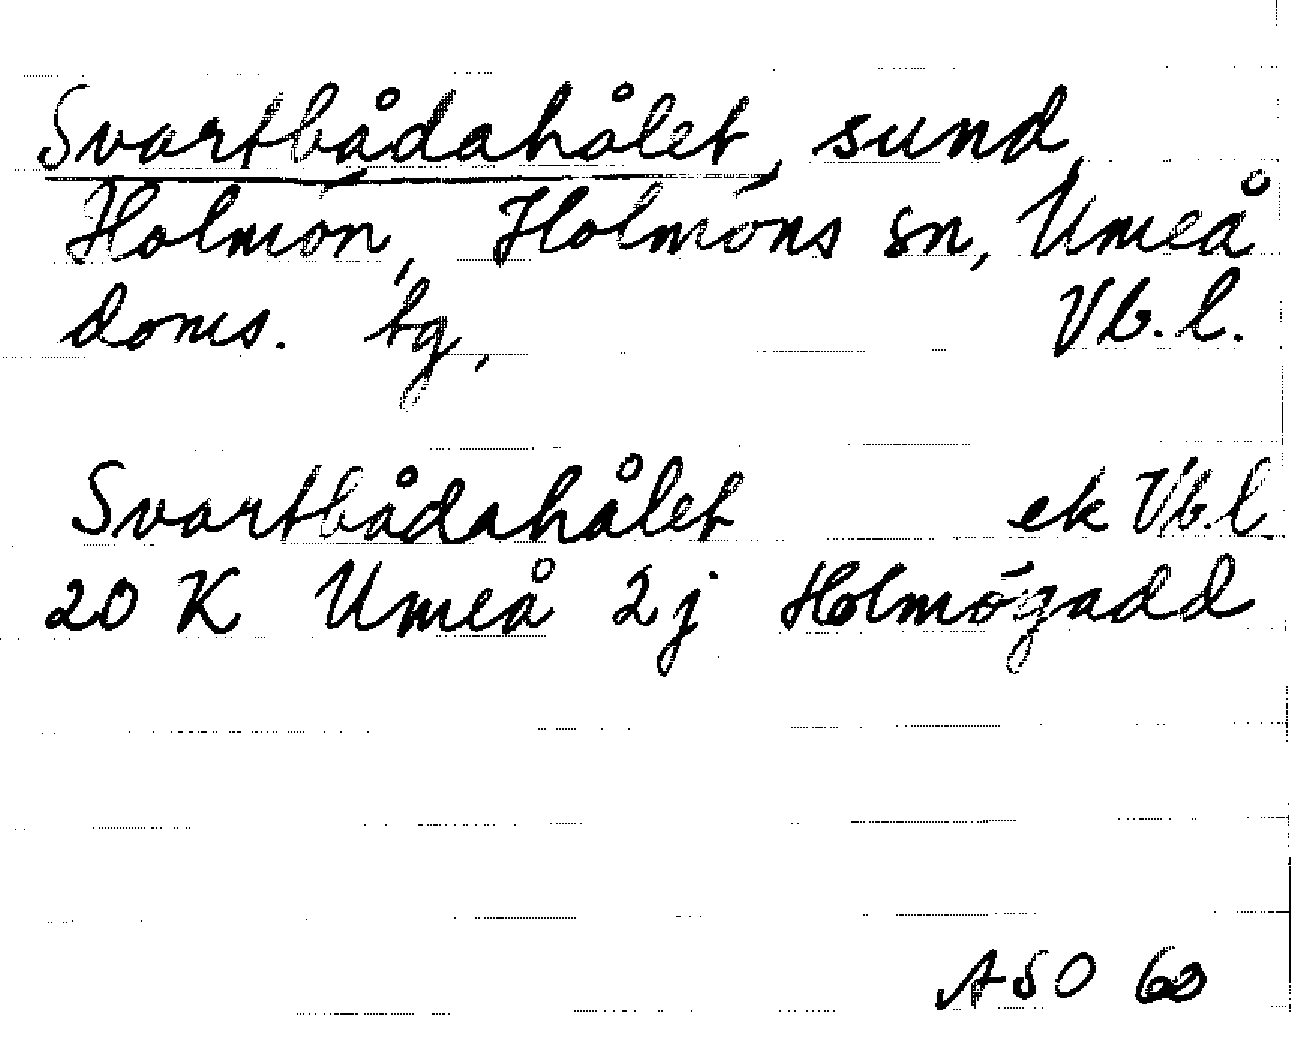 Svartbådahålet, sund,
Holmön, Holmöns sn, Umeå
doms. tg, Vb. l.
Svartbådahålet ek Vb. l.
20 K Umeå 2j Holmögadd
ASO 60